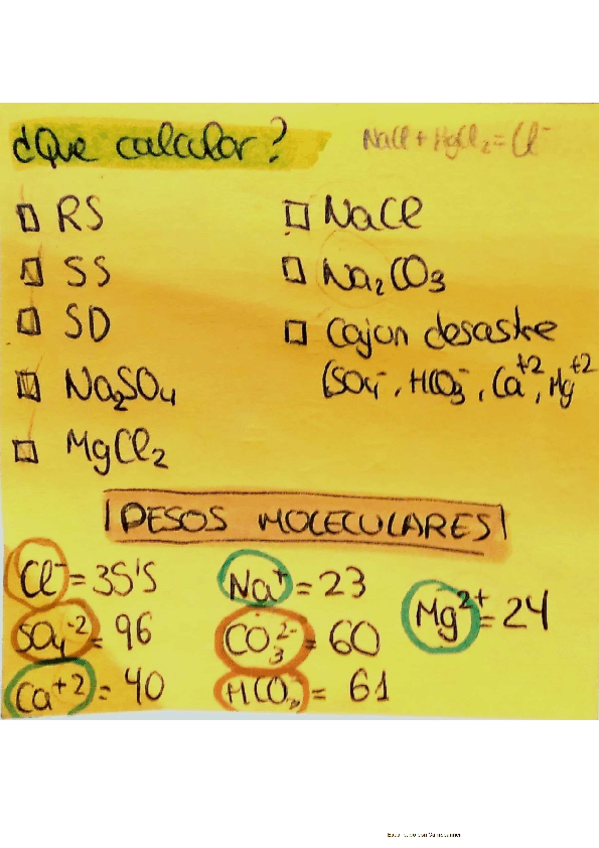 ¿Que calcular?
NaCl + HgCl₂ = Cl⁻
RS
SS
SD
Na₂SO₄
MgCl₂
NaCl
Na₂CO₃
Cajon desastre
(SO₄⁻, HCO₃⁻, Ca⁺², Mg⁺²
PESOS MOLECULARES
Cl⁻ = 35'5
SO₄⁻² = 96
Ca⁺² = 40
Na⁺ = 23
CO₃²⁻ = 60
HCO₃⁻ = 61
Mg²⁺ = 24